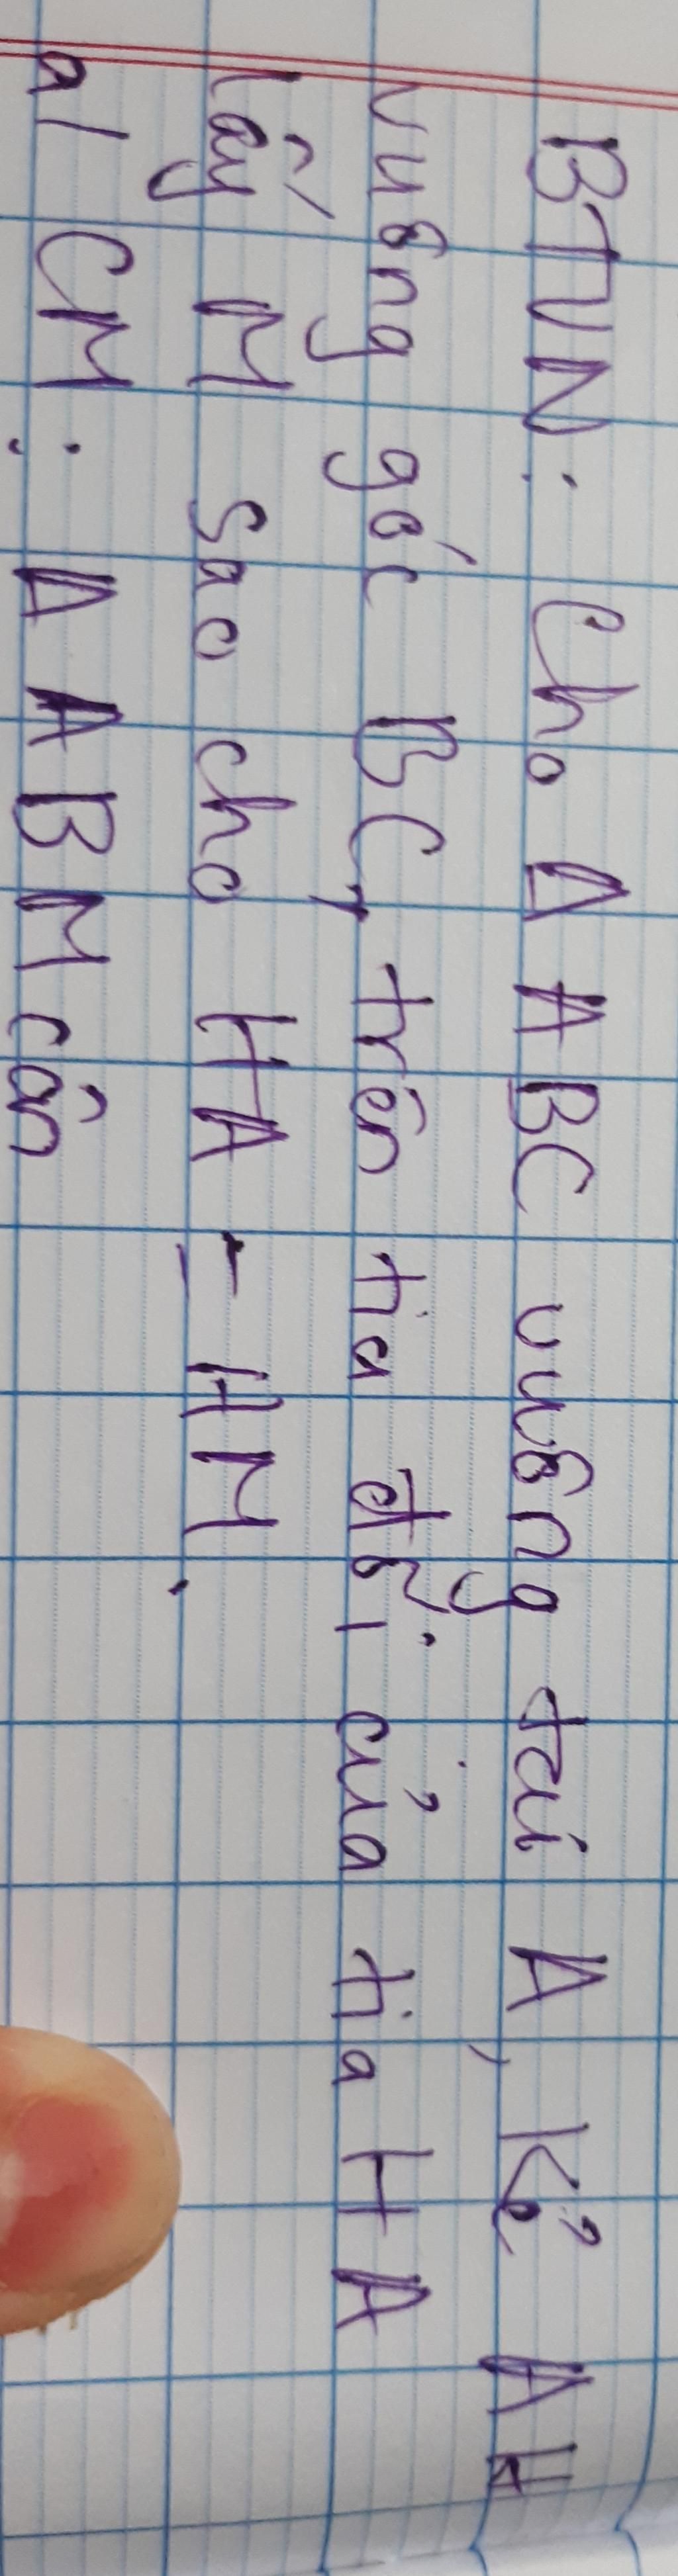 BTVN: Cho Δ ABC vuông tại A, Kẻ AH
vuông góc BC, trên tia đối của tia HA
lấy M sao cho HA = HM.
a/ CM: Δ ABM cân